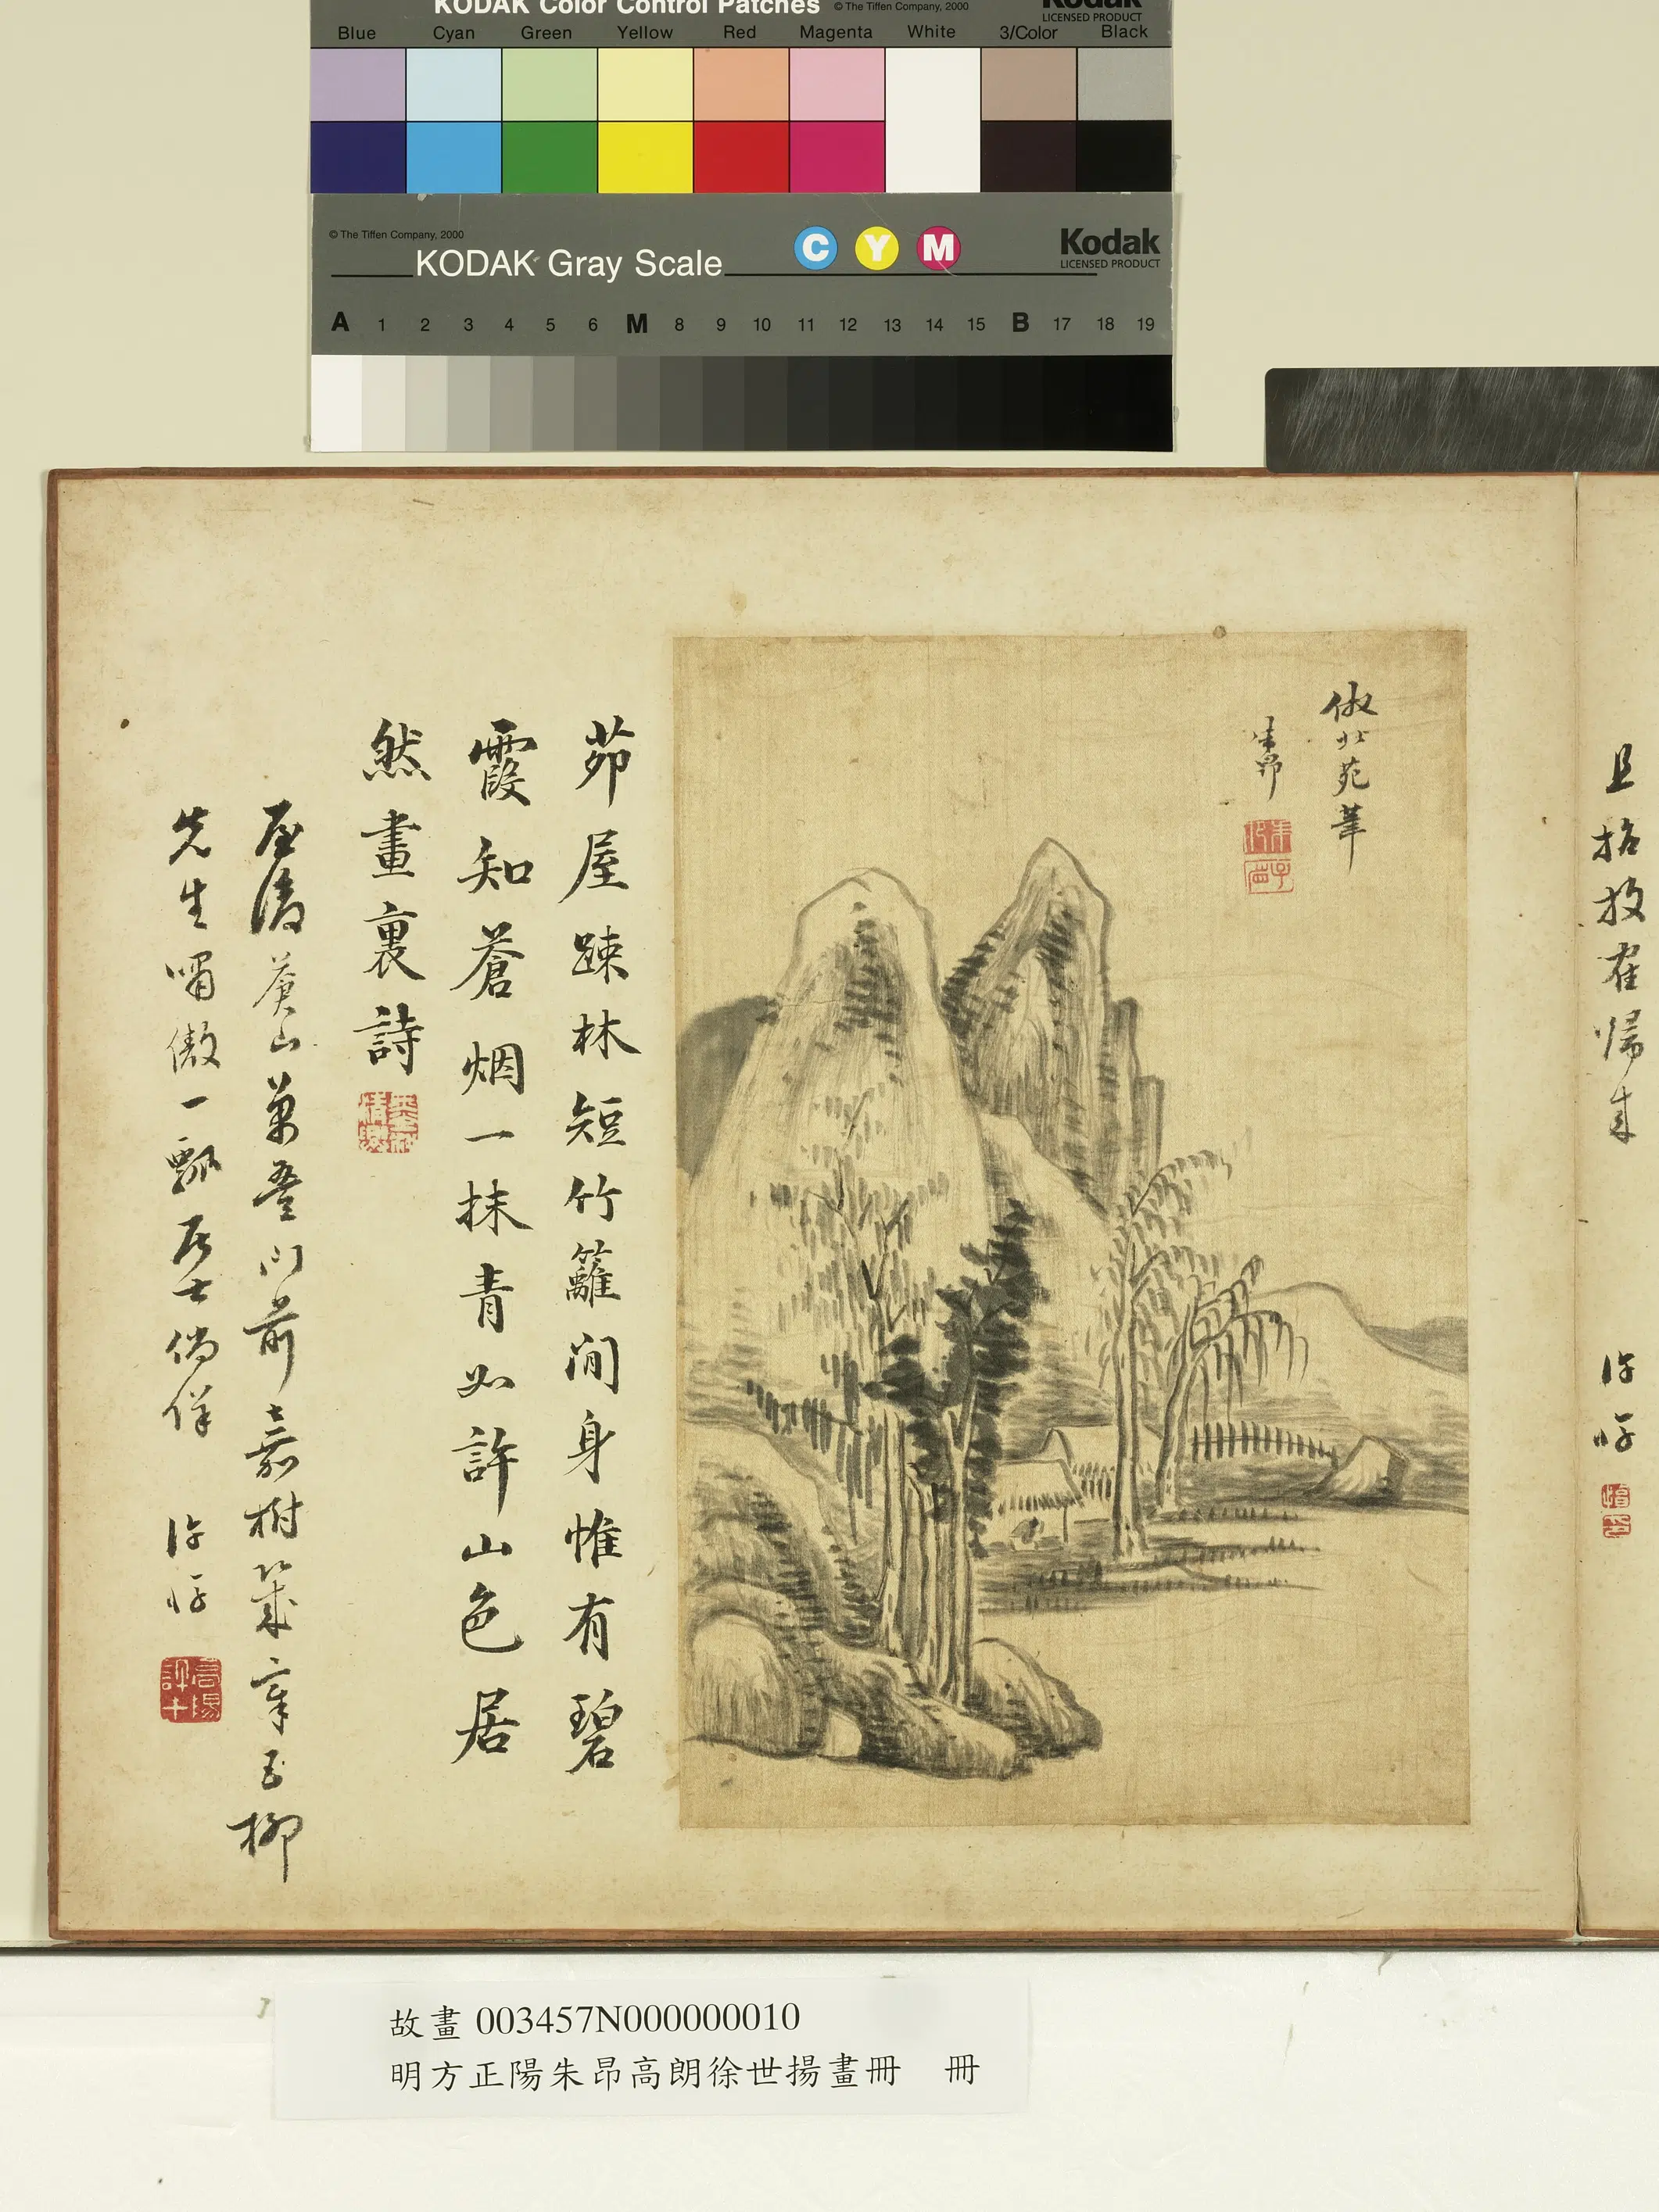 KODAK Color Control Patches © The Tiffen Company, 2000 Kodak
LICENSED PRODUCT
Blue Cyan Green Yellow Red Magenta White 3/Color Black
© The Tiffen Company, 2000
KODAK Gray Scale C Y M Kodak
LICENSED PRODUCT
A 1 2 3 4 5 6 M 8 9 10 11 12 13 14 15 B 17 18 19
歸來
倣北苑筆
朱昂
茆屋踈林短竹籬閒身惟有碧
霞知蒼烟一抹青如許山色居
然畫裏詩
屋後蒼山萬疊門前嘉樹
柳
先生嘯傲一瓢居士倘佯
故畫 003457N000000010
明方正陽朱昂高朗徐世揚畫冊 冊